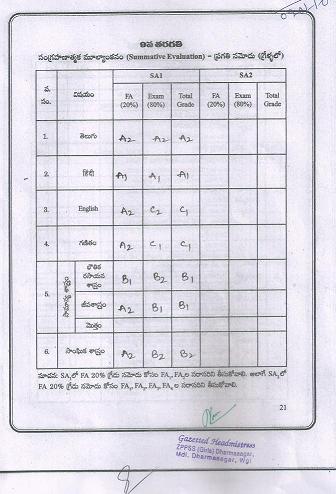 9వ తరగతి
సంగ్రహణాత్మక మూల్యాంకనం (Summative Evaluation) - ప్రగతి నమోదు (గ్రేళ్ళలో)
వ. సం. విషయం SA1 SA2
FA (20%) Exam (80%) Total Grade FA (20%) Exam (80%) Total Grade
1. తెలుగు A2 A2 A2
2. हिंदी A1 A1 A1
3. English A2 C2 C1
4. గణితం A2 C1 C1
5. భౌతిక రసాయన శాస్త్రం B1 B2 B1
జీవశాస్త్రం A2 B1 B1
మొత్తం
6. సాంఘిక శాస్త్రం A2 B2 B2
సూచన: SA1లో FA 20% గ్రేడు నమోదు కోసం FA1, FA2ల సరాసరిని తీసుకోవాలి. అలాగే SA2లో
FA 20% గ్రేడు నమోదు కోసం FA1, FA2, FA3, FA4 ల సరాసరిని తీసుకోవాలి.
21
Gazetted Headmistress
ZPPSS (Girls) Dharmasagar,
Mdl. Dharmasagar, Wgl